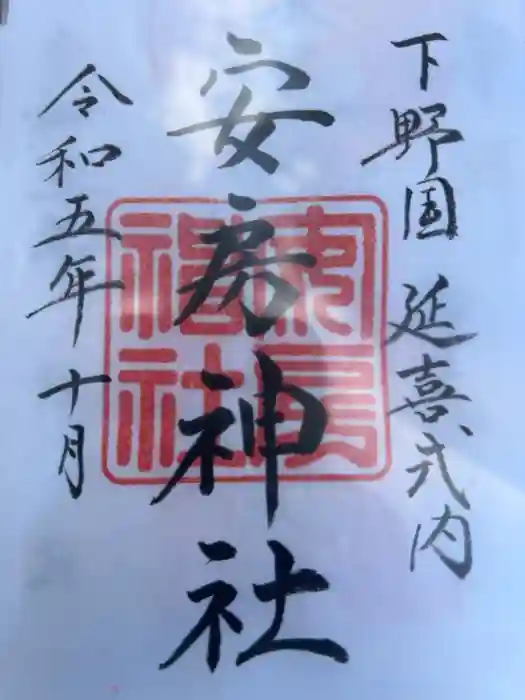 下野国 延喜式内
安房神社
安房神社
令和五年 十月